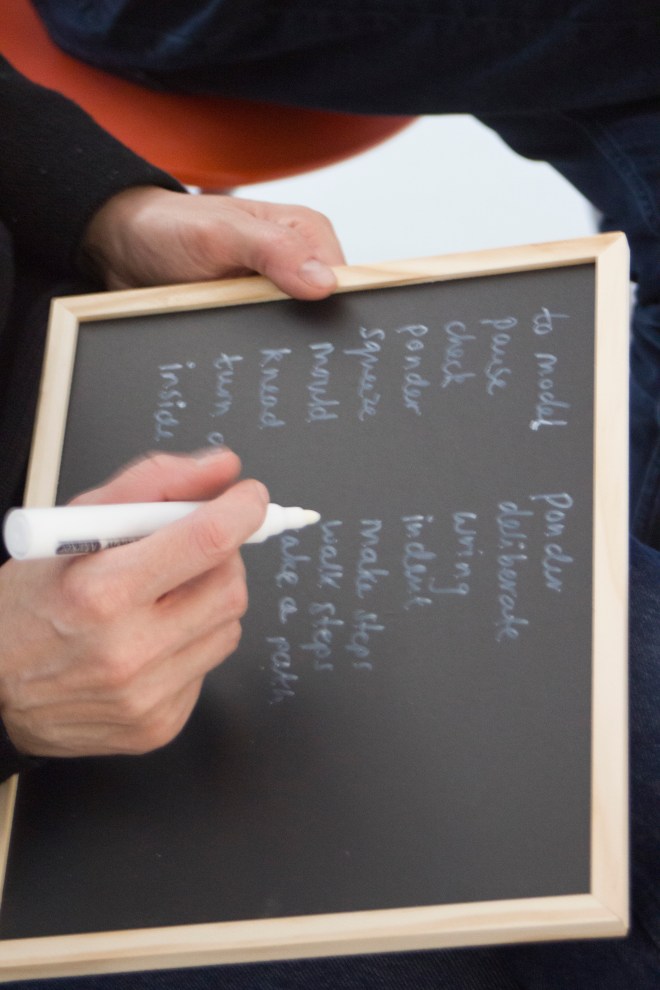 to model
pause
check
ponder
squeeze
mould
knead
turn
inside
ponder
deliberate
wring
indent
make steps
walk steps
a path